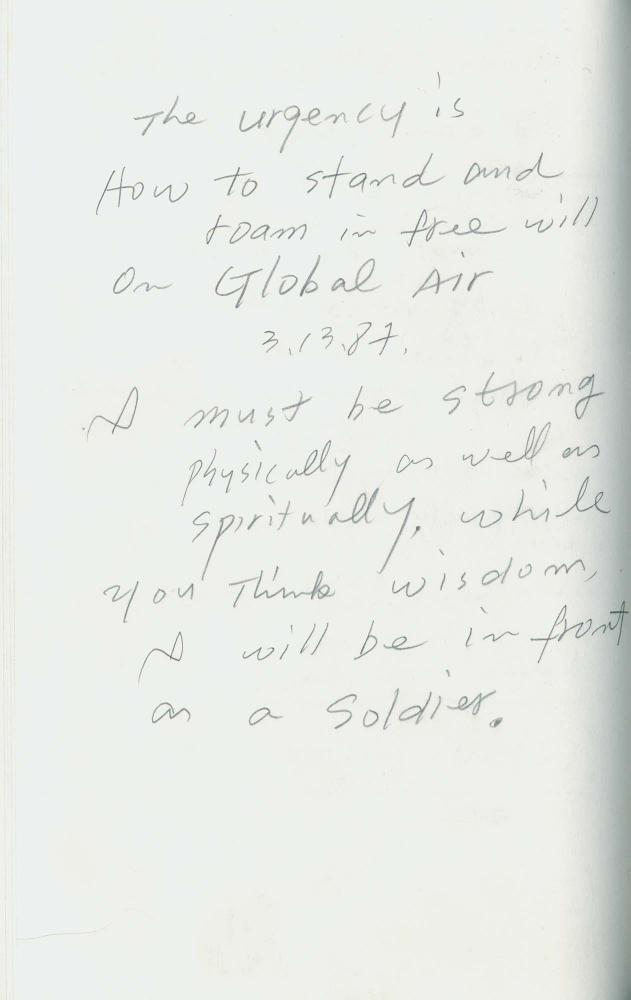 The urgency is
How to stand and
roam in free will
on Global Air
3.13.87.
I must be strong
physically as well as
spiritually. while
you Think wisdom,
I will be in front
as a Soldier.